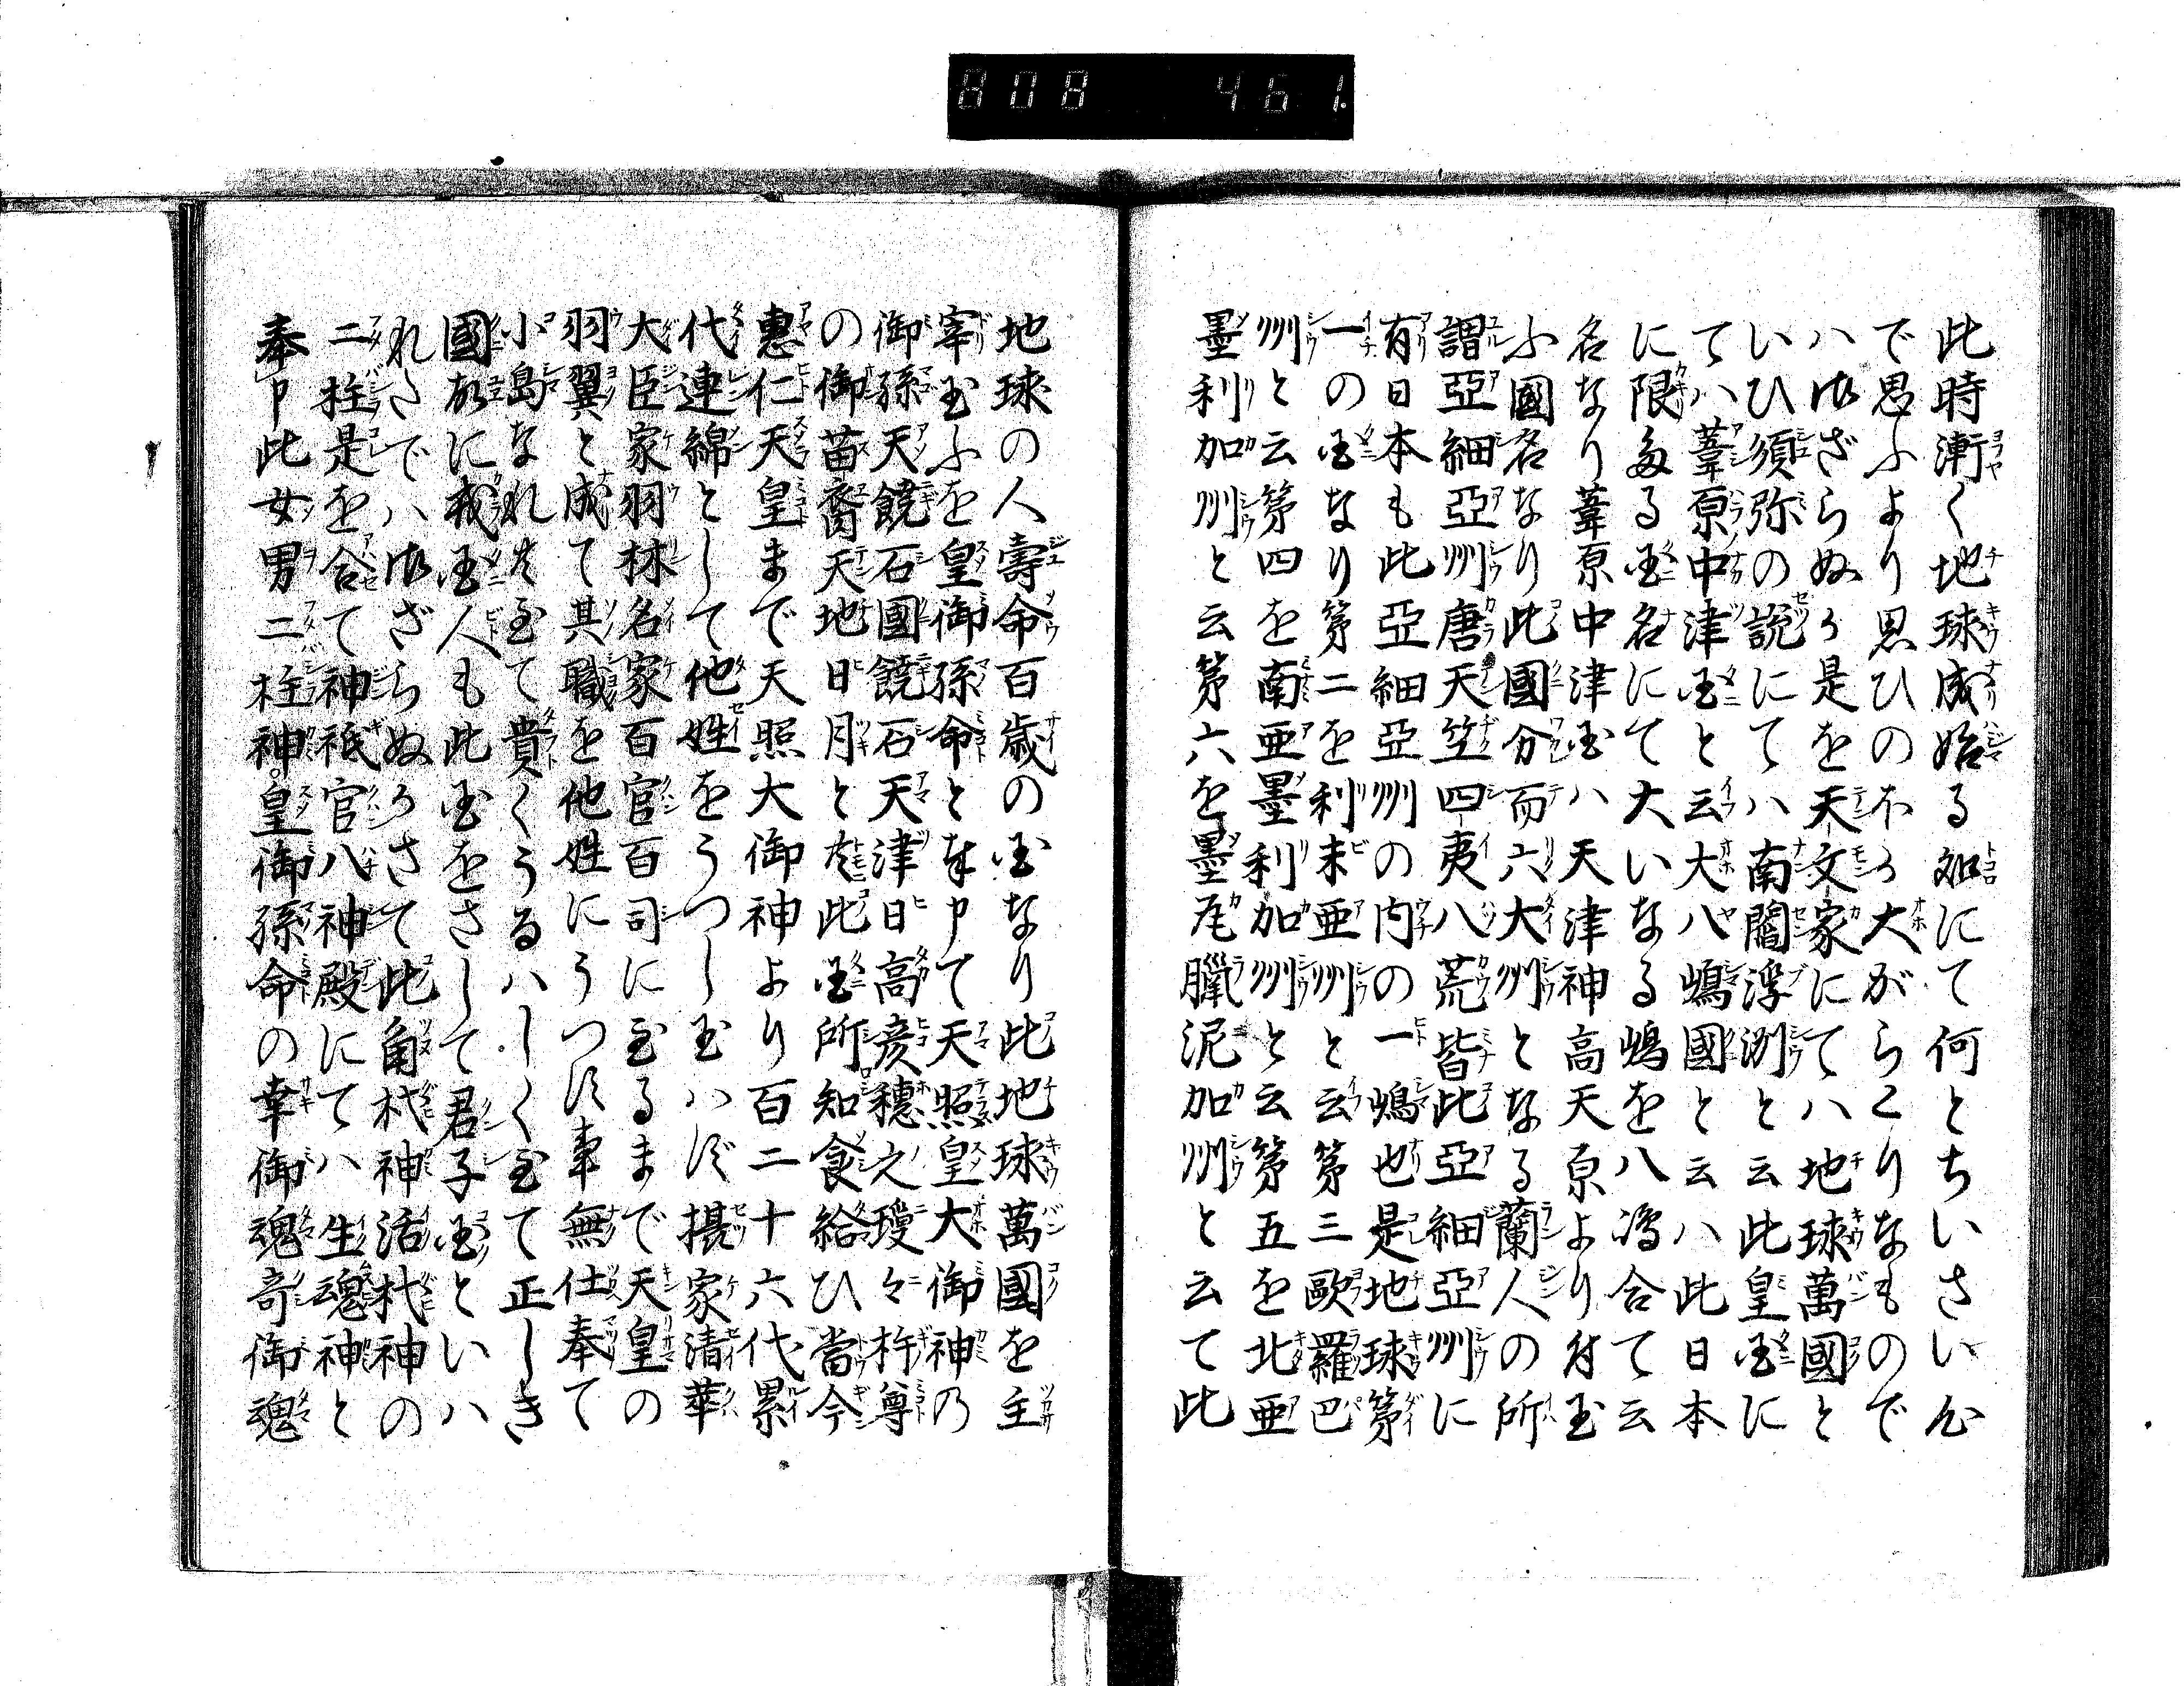 808 461.
此時漸く地球成始る処にて何とちいさい人
で思ふより思ひの外の大がらこりなものでで
ハ御ざらぬか是を天文家にてハ地球萬國と
いひ須弥の説にてハ南閻浮洲と云此皇国に
てハ葦原中津国と云大八嶋國と云ハ此日本
に限たる国名にて大いなる嶋を八ツ合て云
名なり葦原中津国ハ天津神高天原より付玉
ふ國名なり此國分而六大州となる蘭人の所
謂亞細亞州唐天竺四夷八荒皆此亞細亞州に
有日本も此亞細亞州の内の一嶋也是地球第
一の国なり第二を利未亜州と云第三歐羅巴
州と云第四を南亜墨利加州と云第五を北亜
墨利加州と云第六を墨瓦臘泥加州と云て此
地球の人壽命百歳の国なり此地球萬國を主
宰玉ふを皇御孫命と奉申て天照皇大御神乃
御孫天饒石國饒石天津日高彦穂之瓊々杵尊
の御苗裔天地日月と共此国所知食給ひ當今
惠仁天皇まで天照大御神より百二十六代累
代連綿として他姓をうつし玉ハず摂家清華
大臣家羽林名家百官百司に至るまで天皇の
羽翼と成て其職を他姓にうつさず事無仕奉て
小島なれ共至て貴くうるハしく至て正しき
國故に我国人も此国をさして君子国といハ
れさでハ御ざらぬかさて此角杙神活杙神の
二柱是を合て神祇官八神殿にてハ生魂神と
奉申此女男二柱神皇御孫命の幸御魂奇御魂